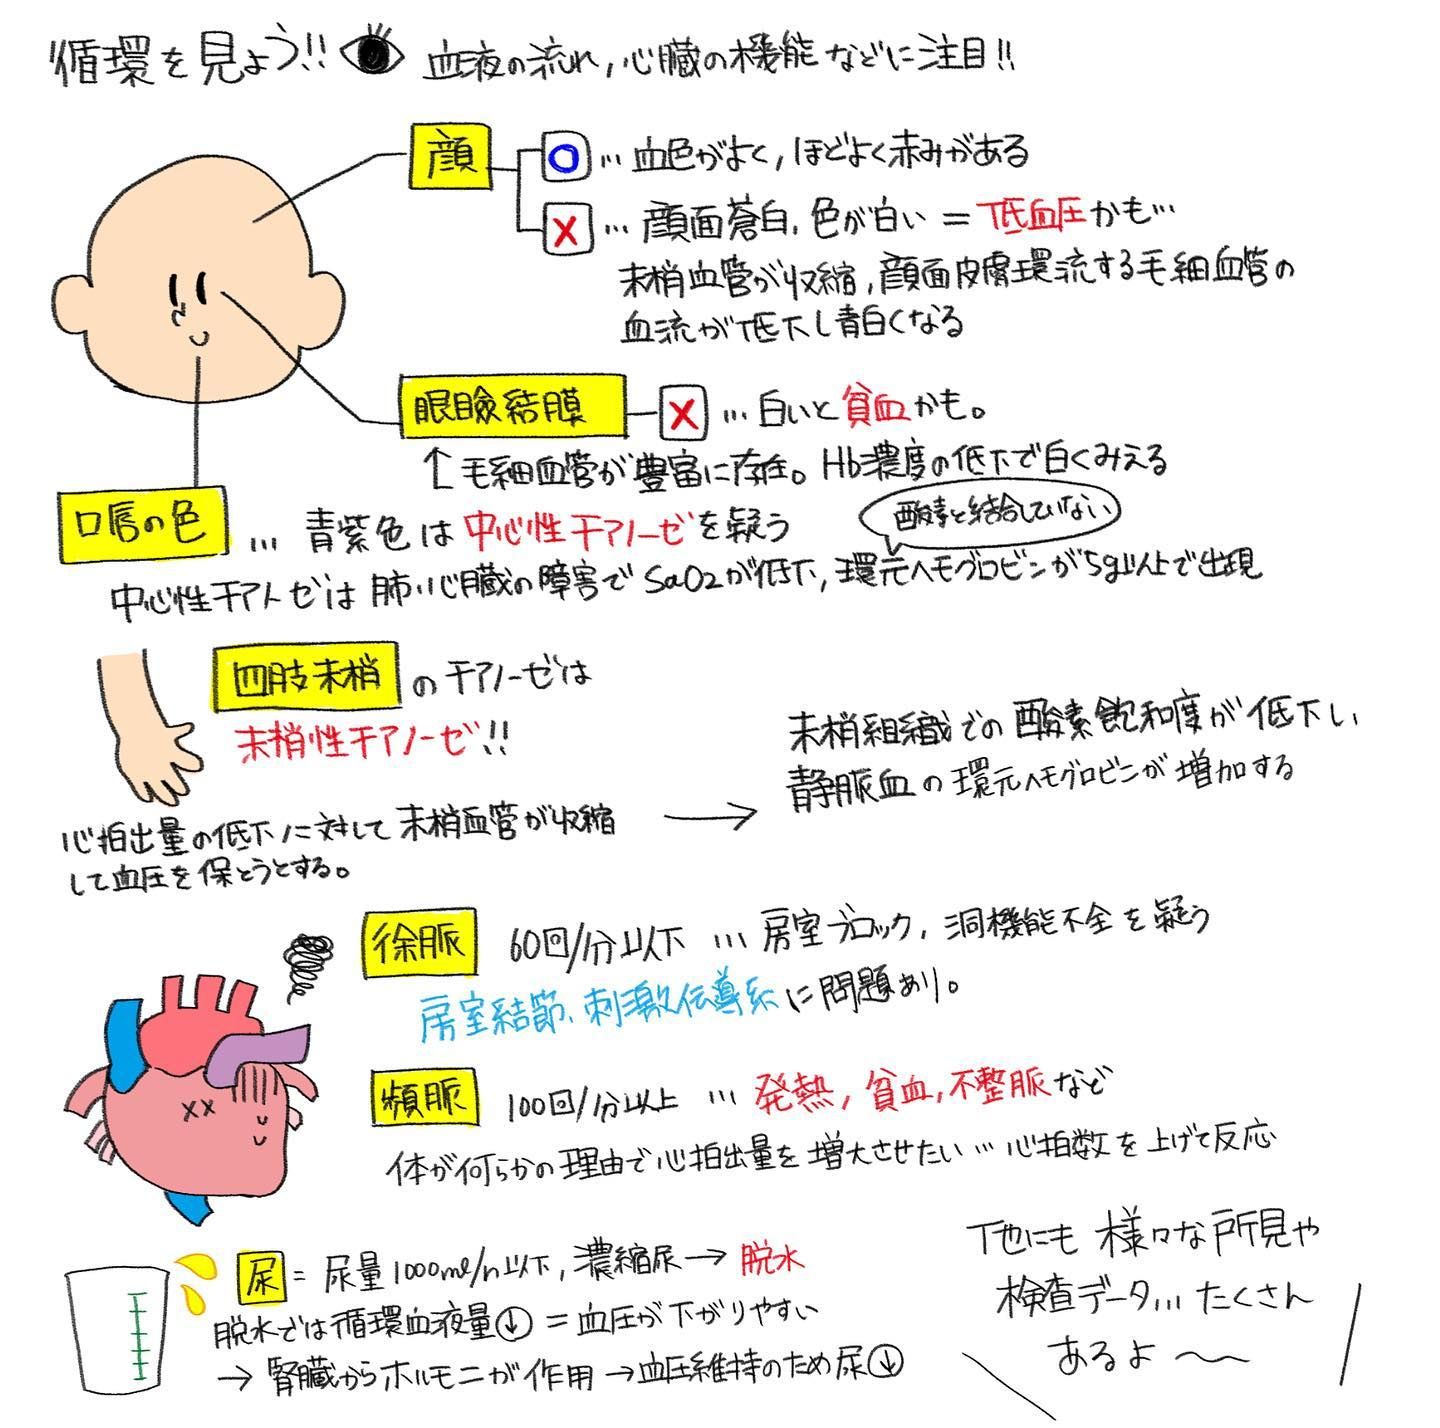 循環を見よう!! 血液の流れ,心臓の機能などに注目!!
顔
○ … 血色がよく,ほどよく赤みがある
× … 顔面蒼白、色が白い = 低血圧かも…
末梢血管が収縮,顔面皮膚環流する毛細血管の
血流が低下し青白くなる
眼瞼結膜 × … 白いと貧血かも。
↑毛細血管が豊富に存在。Hb濃度の低下で白くみえる
口唇の色 … 青紫色は中心性チアノーゼを疑う
酸素と結合していない
中心性チアノーゼは肺・心臓の障害でSaO2が低下,還元ヘモグロビンが5g以上で出現
四肢末梢のチアノーゼは
末梢性チアノーゼ!!
心拍出量の低下に対して末梢血管が収縮
して血圧を保とうとする。
→ 末梢組織での酸素飽和度が低下し、
静脈血の還元ヘモグロビンが増加する
徐脈 60回/分以下 … 房室ブロック,洞機能不全を疑う
房室結節、刺激伝導系に問題あり。
頻脈 100回/分以上 … 発熱,貧血,不整脈など
体が何らかの理由で心拍出量を増大させたい…心拍数を上げて反応
尿 = 尿量1000ml/n以下,濃縮尿→脱水
脱水では循環血液量↓ = 血圧が下がりやすい
→腎臓からホルモンが作用→血圧維持のため尿↓
他にも様々な所見や
検査データ…たくさん
あるよ〜〜